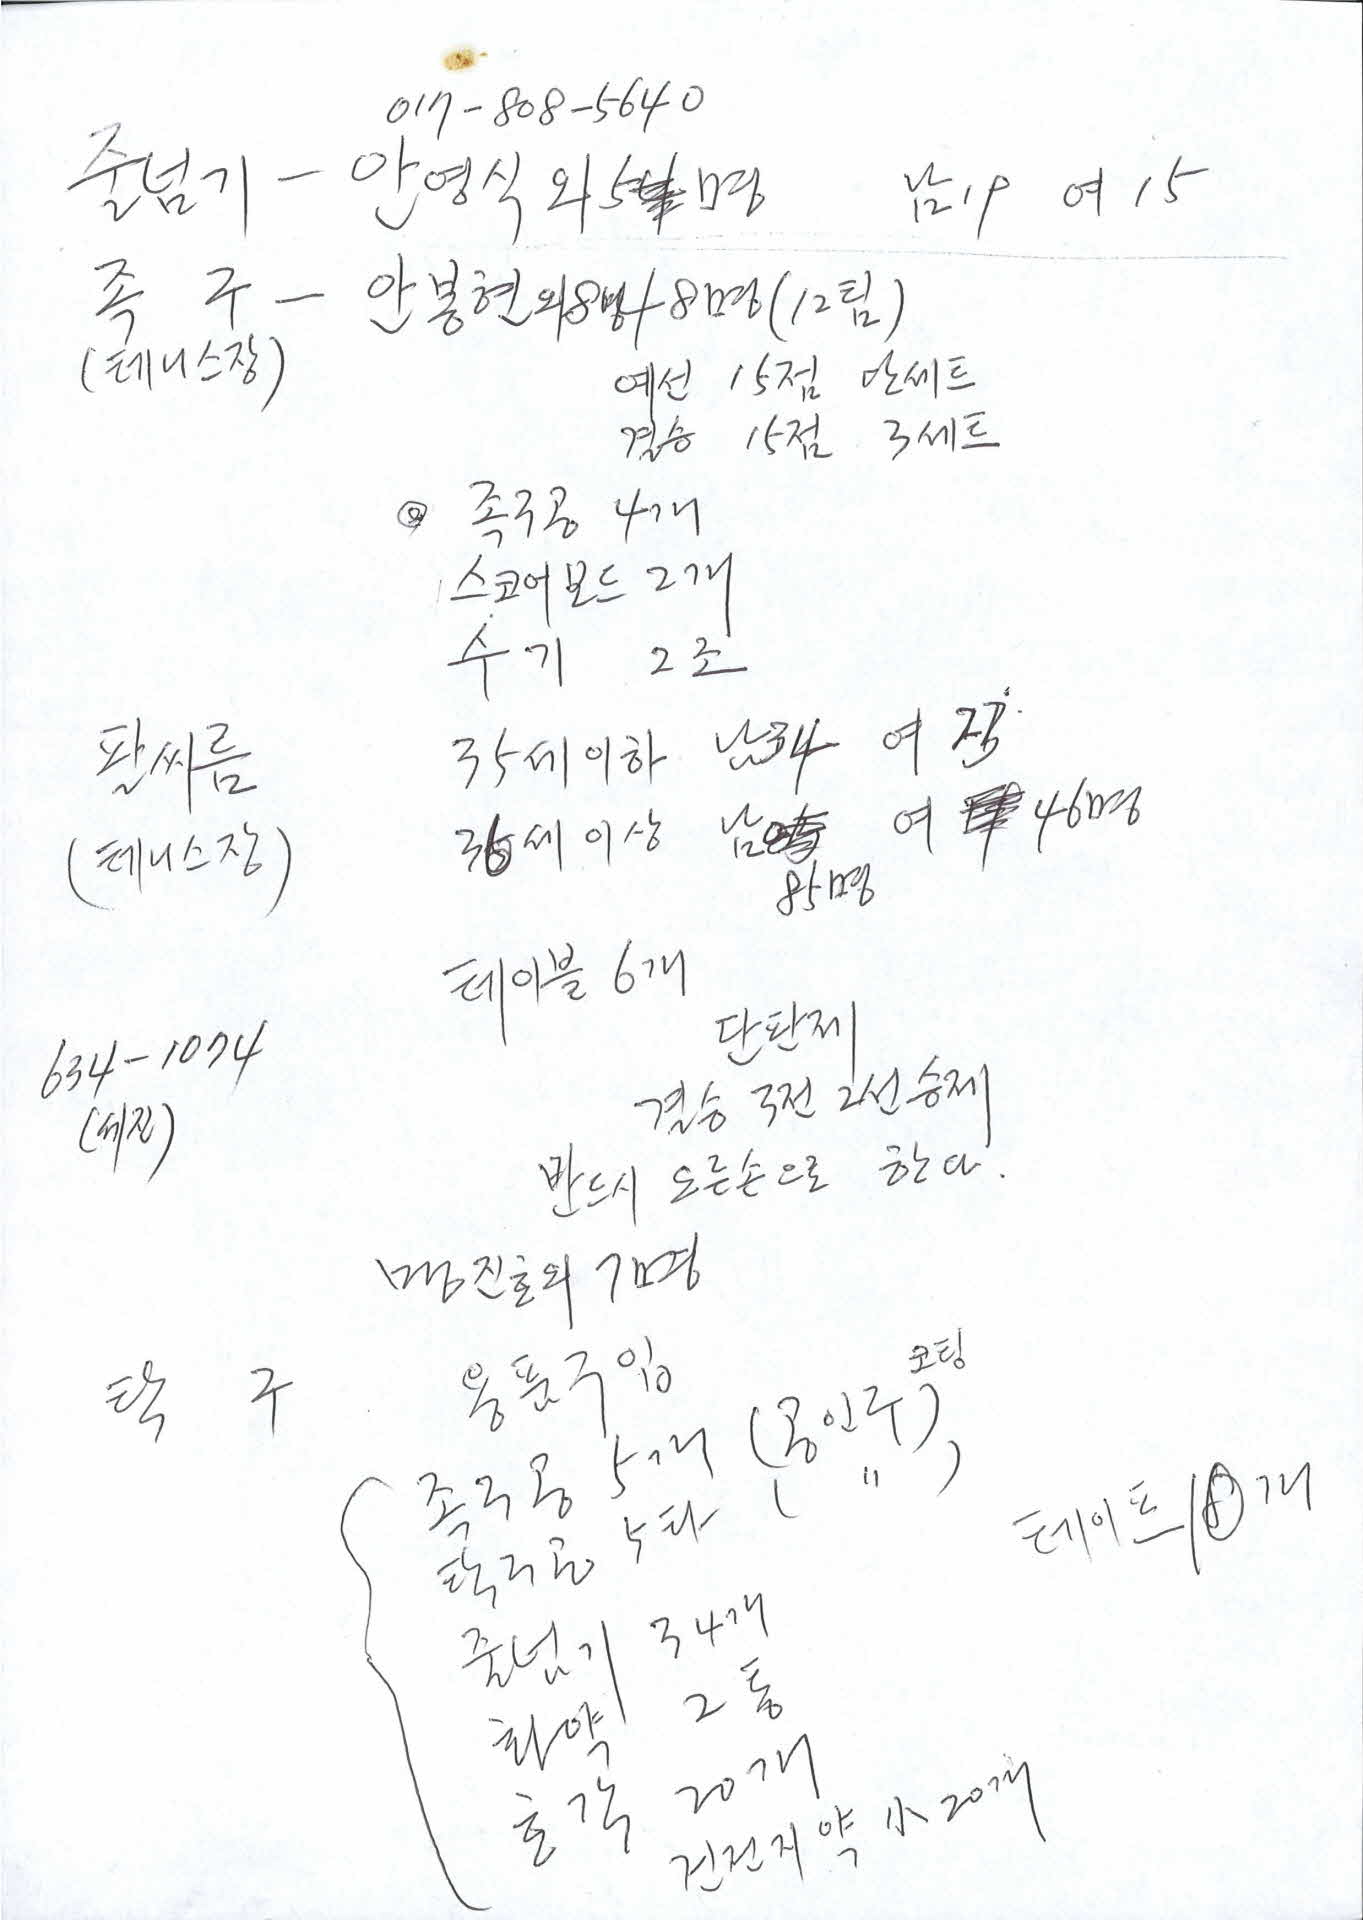 017-808-5640
줄넘기 - 안영식 외 5명 남19 여 15
족 구 - 안봉현외8명 8명(12팀)
(테니스장)
예선 15점 단세트
결승 15점 3세트
족구공 4개
스코어보드 2개
수기 2조
팔씨름 35세이하 남34 여
(테니스장) 36세이상 남 여 46명
85명
테이블 6개
단판제
634-1074
(세진)
결승 3전 2선승제
반드시 오른손으로 한다.
맹진호외 7명
탁 구 용품구입
코팅
족구공 5개 (공인구),
탁구공 5타 ( 〃 )
테이프 10개
줄넘기 34개
화약 2통
호각 20개
건전지약 小 20개